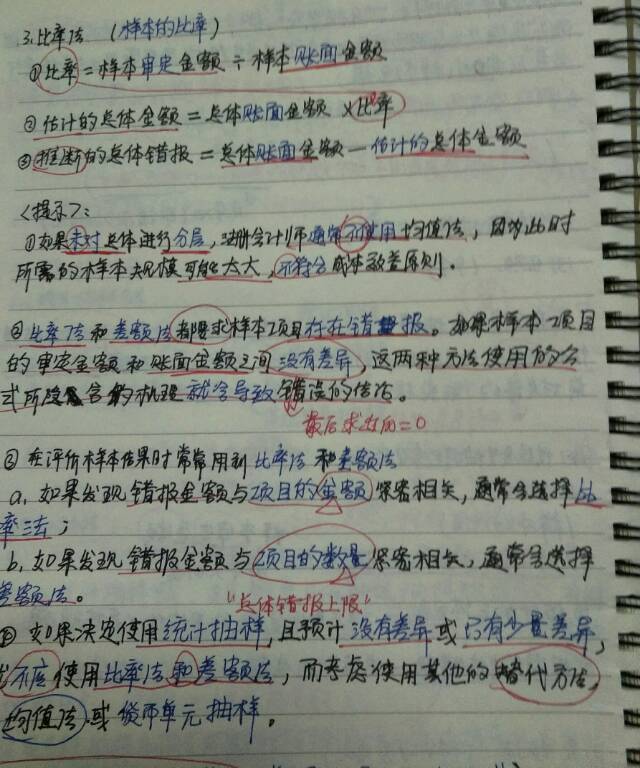 3.比率法（样本的比率）
①比率＝样本审定金额÷样本账面金额
②估计的总体金额＝总体账面金额×比率
③推断的总体错报＝总体账面金额－估计的总体金额
<提示>：
①如果未对总体进行分层，注册会计师通常不使用均值法，因为此时
所需的样本规模可能太大，不符合成本效益原则．
②比率法和差额法都要求样本项目存在错报。如果样本项目
的审定金额和账面金额之间没有差异，这两种方法使用的公
式所隐含的机理就会导致错误的结论。
最后求出的＝0
③在评价样本结果时常常用到比率法和差额法
a．如果发现错报金额与项目的金额紧密相关，通常会选择比
率法；
b．如果发现错报金额与项目的数量紧密相关，通常会选择
差额法。
"总体错报上限"
④如果决定使用统计抽样，且预计没有差异或只有少量差异，
不应使用比率法和差额法，而考虑使用其他的替代方法，
均值法或货币单元抽样。